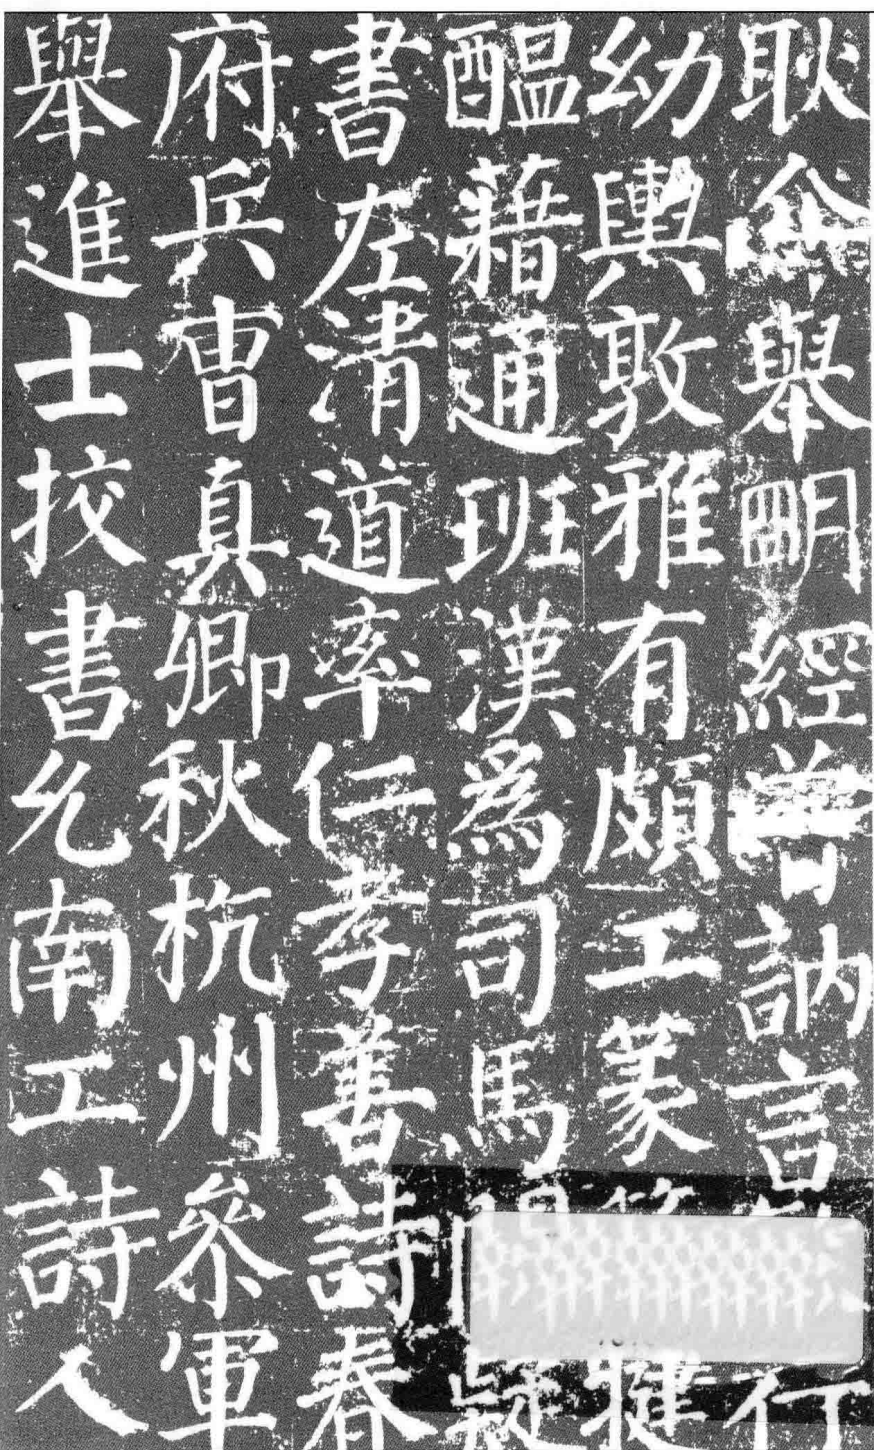 耿舉明經曾訥言行
幼輿敦雅有頗工篆犍
醞藉通班漢為司馬疑
書左清道率仁孝善詩春
府兵曹真卿秋杭州參軍
舉進士挍書允南工詩人